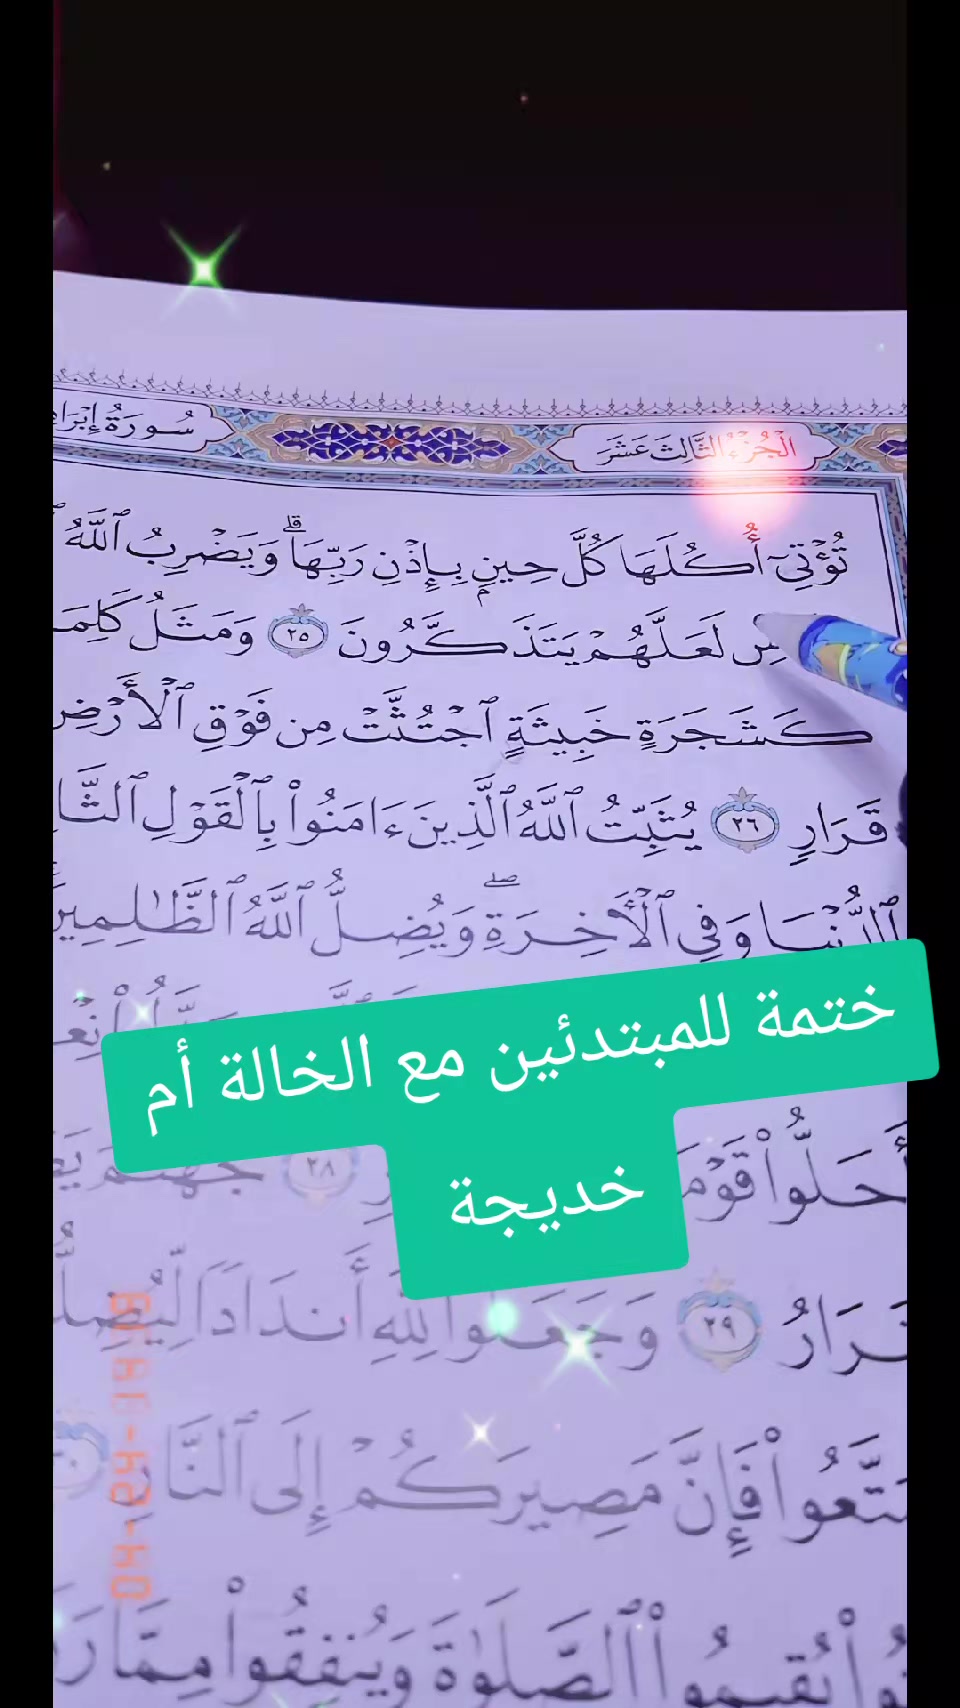 الْجُزْءُ الثَّالِثَ عَشَرَ
سُورَةُ
تُؤْتِىٓ أُكُلَهَا كُلَّ حِينٍۭ بِإِذْنِ رَبِّهَا ۗ وَيَضْرِبُ ٱللَّهُ
لَعَلَّهُمْ يَتَذَكَّرُونَ ٢٥ وَمَثَلُ
كَشَجَرَةٍ خَبِيثَةٍ ٱجْتُثَّتْ مِن فَوْقِ ٱلْأَرْضِ
قَرَارٍ ٢٦ يُثَبِّتُ ٱللَّهُ ٱلَّذِينَ ءَامَنُوا۟ بِٱلْقَوْلِ
ٱلدُّنْيَا وَفِى ٱلْـَٔاخِرَةِ ۖ وَيُضِلُّ ٱللَّهُ ٱلظَّـٰلِمِينَ
ختمة للمبتدئين مع الخالة أم
خديجة
أَحَلُّوا۟ ٢٨ جَهَنَّمَ
٢٩ وَجَعَلُوا۟ لِلَّهِ أَندَادًا
فَإِنَّ مَصِيرَكُمْ إِلَى ٱلنَّارِ
ٱلصَّلَوٰةَ وَيُنفِقُوا۟